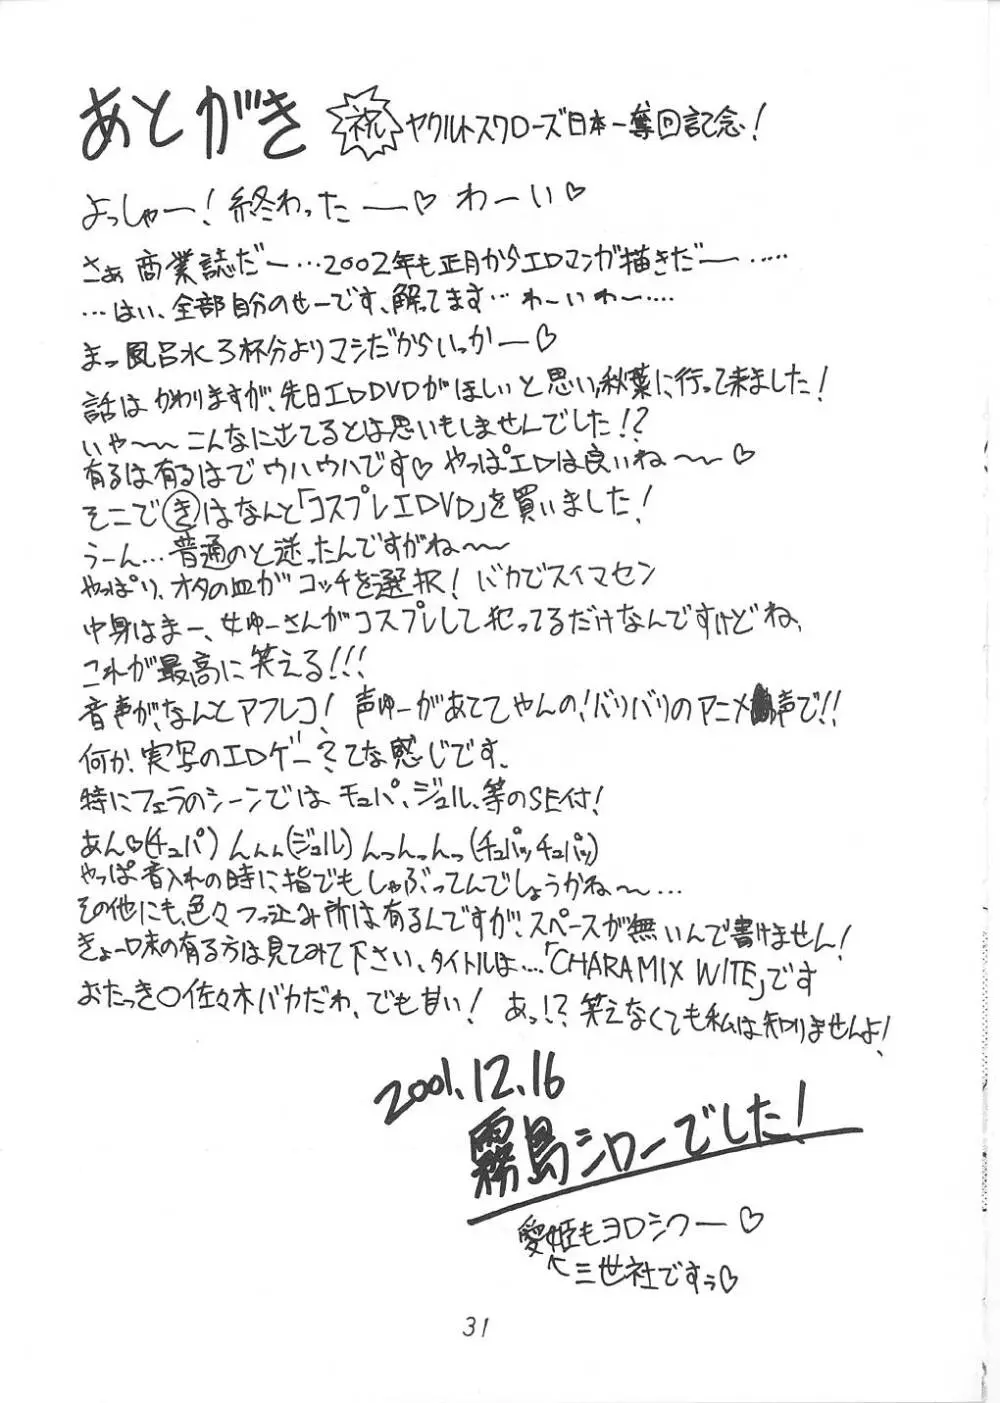 あとがき 祝 ヤクルトスワローズ日本一奪回記念!
よっしゃー!終わったー♡ わーい♡
さぁ商業誌だー…2002年も正月からエロマンガ描きだー……
…はい、全部自分のせーです、解てます… わーいわー……
まっ風呂水3杯分よりマシだからいっかー♡
話はかわりますが、先日エロDVDがほしいと思い、秋葉に行って来ました!
いや〜〜こんなに出てるとは思いもしませんでした!?
有るは有るはでウハウハです♡ やっぱエロは良いね〜〜♡
そこで㋖はなんと「コスプレエロDVD」を買いました!
うーん…普通のと迷ったんですがね〜〜
やっぱり、オタの血がコッチを選択! バカでスイマセン
中身はまー、女ゆーさんがコスプレして犯ってるだけなんですけどね、
これが最高に笑える!!!
音声が、なんとアフレコ! 声ゆーがあててやんの!バリバリのアニメ声で!!
何か、実写のエロゲー?てな感じです、
特にフェラのシーンではチュパ、ジュル、等のSE付!
あん♡(チュパ)んんん(ジュル)んっんっんっ(チュパッチュパッ)
やっぱ音入れの時に指でもしゃぶってんでしょうかね〜…
その他にも、色々ツッ込み所は有るんですが、スペースが無いんで書けません!
きょーロ味の有る方は見てみて下さい、タイトルは…「CHARAMIX WITE」です
おたっき○佐々木バカだわ、でも甘い! あっ!?笑えなくても私は知りませんよ!
2001.12.16
霧島シローでした!
愛姫もヨロシクー♡
へ三世社ですぅ♡
31